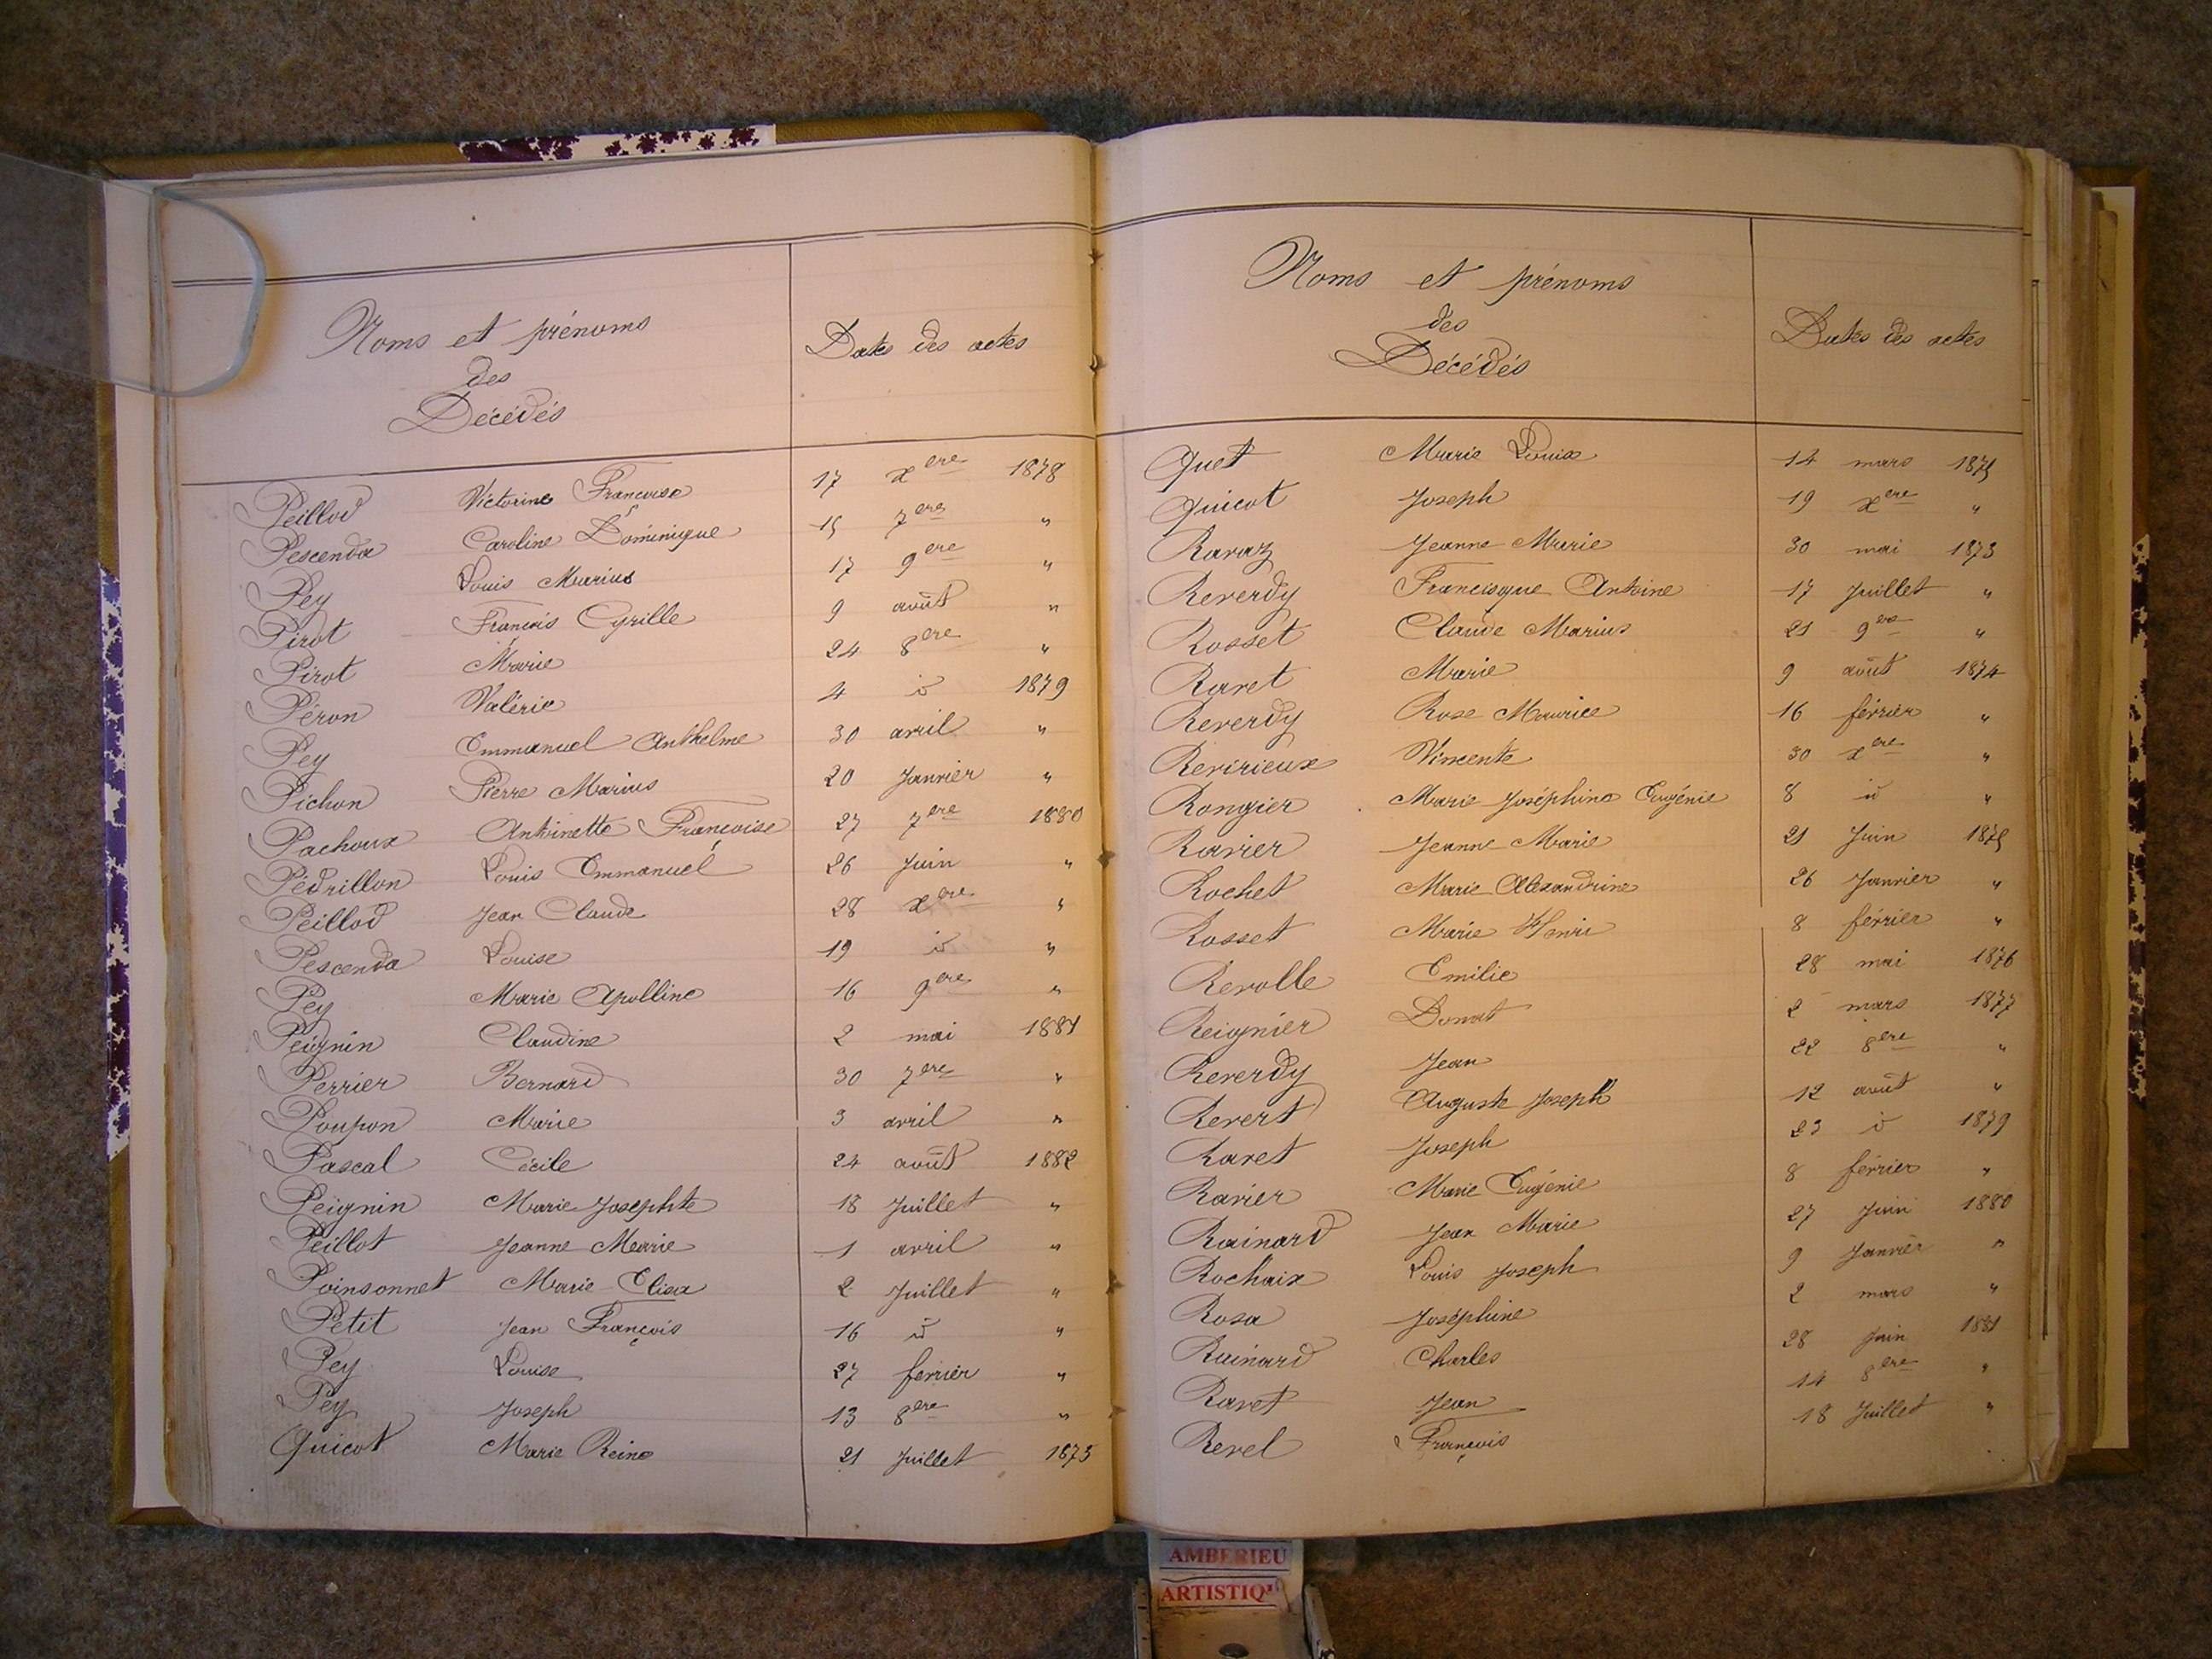 Noms et prénoms
des
Décédés
Dates des actes
Peillod Victorine Françoise 17 xere 1878
Pescenda Caroline Dominique 15 7ere "
Pey Louis Marius 17 9ere "
Pirot François Cyrille 9 août "
Pirot Marie 24 8ere "
Péron Valérie 4 id 1879
Pey Emmanuel Anthelme 30 avril "
Pichon Pierre Marius 20 Janvier "
Pachoux Antoinette Françoise 27 7ere 1880
Pédrillon Louis Emmanuel 26 Juin "
Peillod Jean Claude 28 xere "
Pescenda Louise 19 id "
Pey Marie Apolline 16 9ere "
Peignin Claudine 2 mai 1881
Perrier Bernard 30 7ere "
Poupon Marie 3 avril "
Pascal Cécile 24 août 1882
Peignin Marie Josephte 18 Juillet "
Peillot Jeanne Marie 1 avril "
Poinsonnet Marie Elisa 2 Juillet "
Petit Jean François 16 id "
Pey Louise 27 ferrier "
Pey Joseph 13 8ere "
Quicot Marie Reine 21 Juillet 1873
Noms et prénoms
des
Décédés
Dates des actes
Quet Marie Louise 14 mars 1875
Quicot Joseph 19 xere "
Ravaz Jeanne Marie 30 mai 1873
Reverdy Francisque Antoine 17 Juillet "
Rosset Claude Marius 21 9ere "
Ravet Marie 9 août 1874
Reverdy Rose Maurice 16 février "
Revirieux Vincente 30 xere "
Rongier Marie Joséphine Eugénie 8 id "
Ravier Jeanne Marie 21 Juin 1875
Rochet Marie Alexandrine 26 Janvier "
Rosset Marie Henri 8 février "
Revolle Emilie 28 mai 1876
Reignier Donat 2 mars 1877
Reverdy Jean 22 8ere "
Revert Auguste Joseph 12 août "
Ravet Joseph 23 id 1879
Ravier Marie Eugénie 8 février "
Rainard Jean Marie 27 Juin 1880
Rochaix Louis Joseph 9 Janvier "
Rosa Joséphine 2 mars "
Rainard Charles 28 Juin 1881
Ravet Jean 14 8ere "
Revel François 18 Juillet "
AMBERIEU
ARTISTIQ